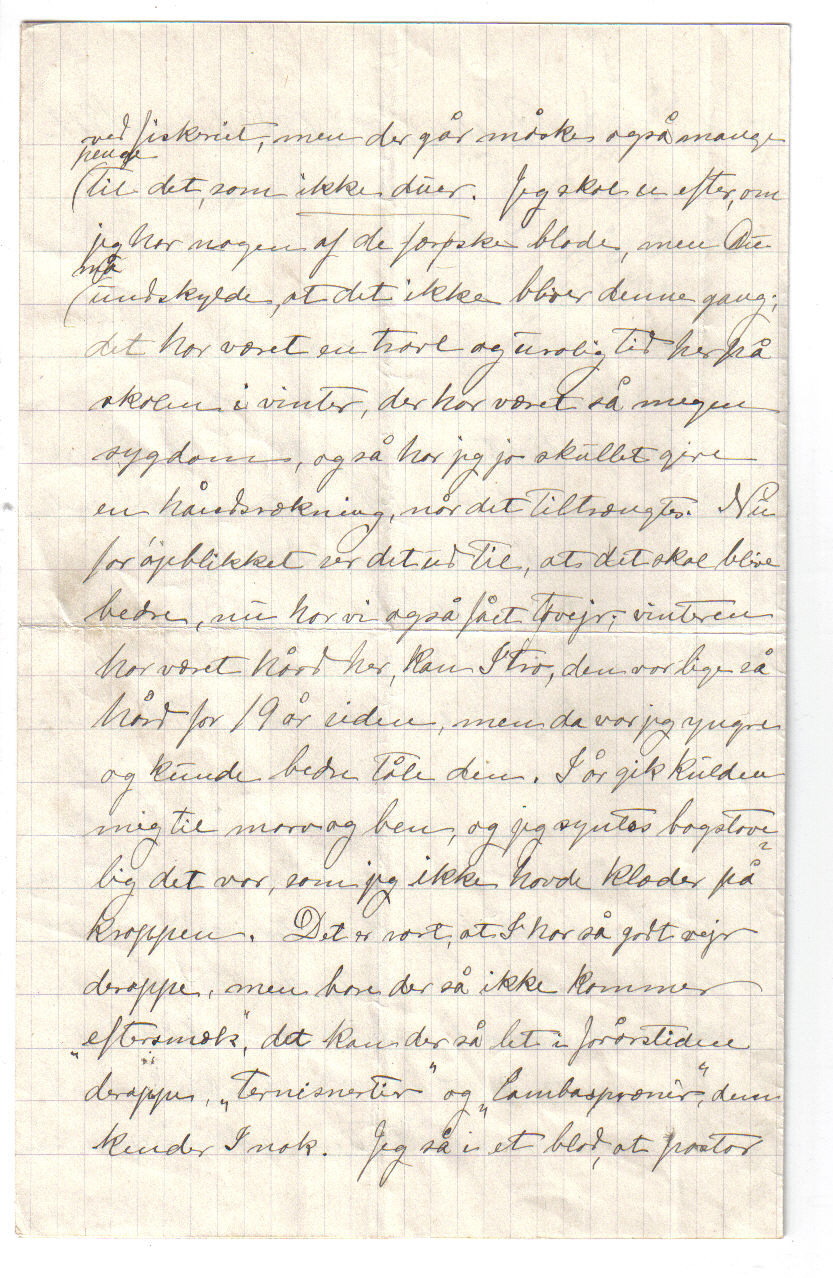 ved fiskeriet, men der går måske også mange
penge
(til det, som ikke duer. Jeg skal se efter, om
jeg har nogen af de færøske blade, men Du
må
(undskylde, at det ikke bliver denne gang;
det har været en travl og urolig tid her på
skolen i vinter, der har været så megen
sygdom, også har jeg jo skullet give
en håndsrækning, når det tiltrængtes. Nu
for øjeblikket ser det ud til, at det skal blive
bedre, nu har vi også fået tøvejr; vinteren
har været hård her, kan I tro, den var lige så
hård for 19 år siden, men da var jeg yngre
og kunde bedre tåle den. I år gik kulden
mig til marv og ben, og jeg syntes bogstave
lig det var, som jeg ikke havde klæder på
kroppen. Det er rart, at I har så godt vejr
deroppe, men bare der så ikke kommer
„eftersmæk", det kan der så let i forårstiden
deroppe, „ternisnertir" og „lambasprænir", dem
kender I nok. Jeg så i et blad, at pastor